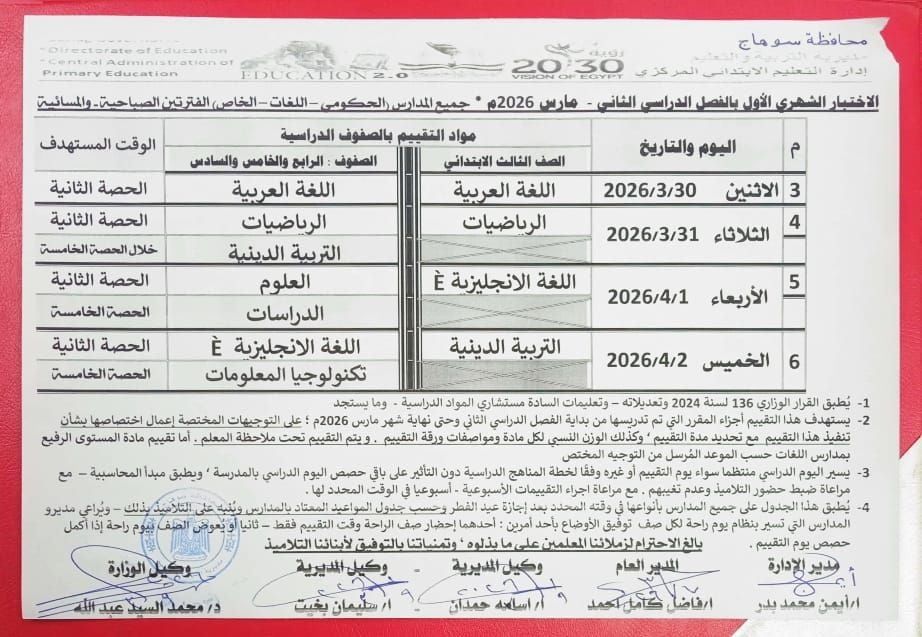 محافظة سوهاج
مديرية التربية والتعليم
إدارة التعليم الابتدائي المركزي
Directorate of Education
Central Administration of
Primary Education
EDUCATION 2.0
رؤية
2030
VISION OF EGYPT
الاختبار الشهري الأول بالفصل الدراسي الثاني - مارس 2026م * جميع المدارس (الحكومي – اللغات – الخاص) الفترتين الصباحية، والمسائية
م اليوم والتاريخ مواد التقييم بالصفوف الدراسية الوقت المستهدف
الصف الثالث الابتدائي الصفوف : الرابع والخامس والسادس
3 الاثنين 2026/3/30 اللغة العربية اللغة العربية الحصة الثانية
4 الثلاثاء 2026/3/31 الرياضيات الرياضيات الحصة الثانية
التربية الدينية خلال الحصة الخامسة
5 الأربعاء 2026/4/1 اللغة الانجليزية È العلوم الحصة الثانية
الدراسات الحصة الخامسة
6 الخميس 2026/4/2 التربية الدينية اللغة الانجليزية È الحصة الثانية
تكنولوجيا المعلومات الحصة الخامسة
1- يُطبق القرار الوزاري 136 لسنة 2024 وتعديلاته – وتعليمات السادة مستشاري المواد الدراسية - وما يستجد
2- يستهدف هذا التقييم أجزاء المقرر التي تم تدريسها من بداية الفصل الدراسي الثاني وحتى نهاية شهر مارس 2026م ؛ على التوجيهات المختصة إعمال اختصاصها بشأن
تنفيذ هذا التقييم مع تحديد مدة التقييم ' وكذلك الوزن النسبي لكل مادة ومواصفات ورقة التقييم . و يتم التقييم تحت ملاحظة المعلم . أما تقييم مادة المستوى الرفيع
بمدارس اللغات حسب الموعد المُرسل من التوجيه المختص
3- يسير اليوم الدراسي منتظما سواء يوم التقييم أو غيره وفقًا لخطة المناهج الدراسية دون التأثير على باقي حصص اليوم الدراسي بالمدرسة ' ويطبق مبدأ المحاسبية – مع
مراعاة ضبط حضور التلاميذ وعدم تغيبهم . مع مراعاة اجراء التقييمات الأسبوعية - أسبوعيا في الوقت المحدد لها .
4- يُطبق هذا الجدول على جميع المدارس بأنواعها في وقته المحدد بعد إجازة عيد الفطر وحسب جدول المواعيد المعتاد بالمدارس ويُنبه على التلاميذ بذلك – ويُراعي مديرو
المدارس التي تسير بنظام يوم راحة لكل صف توفيق الأوضاع بأحد أمرين : أحدهما إحضار صف الراحة وقت التقييم فقط – ثانيا أو يُعوض الصف بيوم راحة إذا أكمل
حصص يوم التقييم .
بالغ الاحترام لزملائنا المعلمين على ما بذلوه ' وتمنياتنا بالتوفيق لأبنائنا التلاميذ
مدير الإدارة المدير العام وكيل المديرية - وكيل المديرية وكيل الوزارة
أ/أيمن محمد بدر أ/فاضل كامل احمد أ/ أسامه حمدان أ/ سليمان بخيت د/ محمد السيد عبد الله